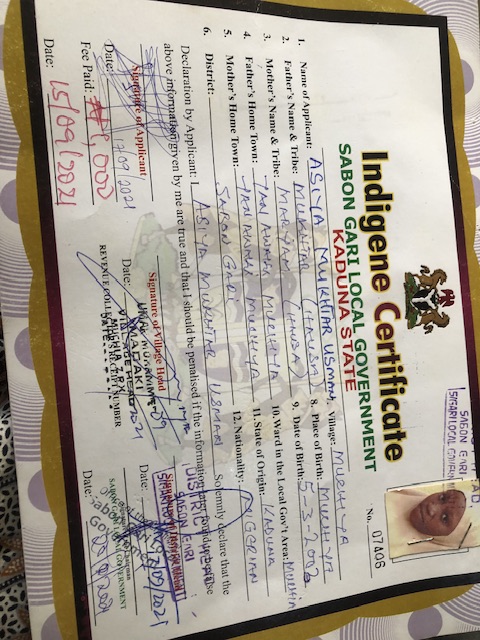 Indigene Certificate
SABON GARI LOCAL GOVERNMENT
KADUNA STATE
SABON GARI
No. 07406
1. Name of Applicant: ASIYA MUKHTAR USMAN
2. Father's Name & Tribe: MUKHTAR (HAUSA)
3. Mother's Name & Tribe: MARYAM (HAUSA)
4. Father's Home Town: MUCHIYA
5. Mother's Home Town: MUCHIYA
6. District: SABON GARI
7. Village: MUCHIYA
8. Place of Birth: MUCHIYA
9. Date of Birth: 5-3-2002
10. Ward in the Local Gov't Area: MUCHIA
11. State of Origin: KADUNA
12. Nationality: NIGERIAN
Declaration by Applicant: I ASIYA MUKHTAR USMAN Solemnly declare that the
above information given by me are true and that I should be penalised if the information are found to be false
Signature of Applicant
Date: 17/09/2021
Fee Paid: ₦1,000
Date: 15/09/2021
Signature of Village Head
Date:
MADAKI
VILLAGE HEAD
REVENUE COLLECTOR'S RECEIPT NUMBER
DISTRICT
Date:
SABON GARI LOCAL GOVERNMENT
Date: